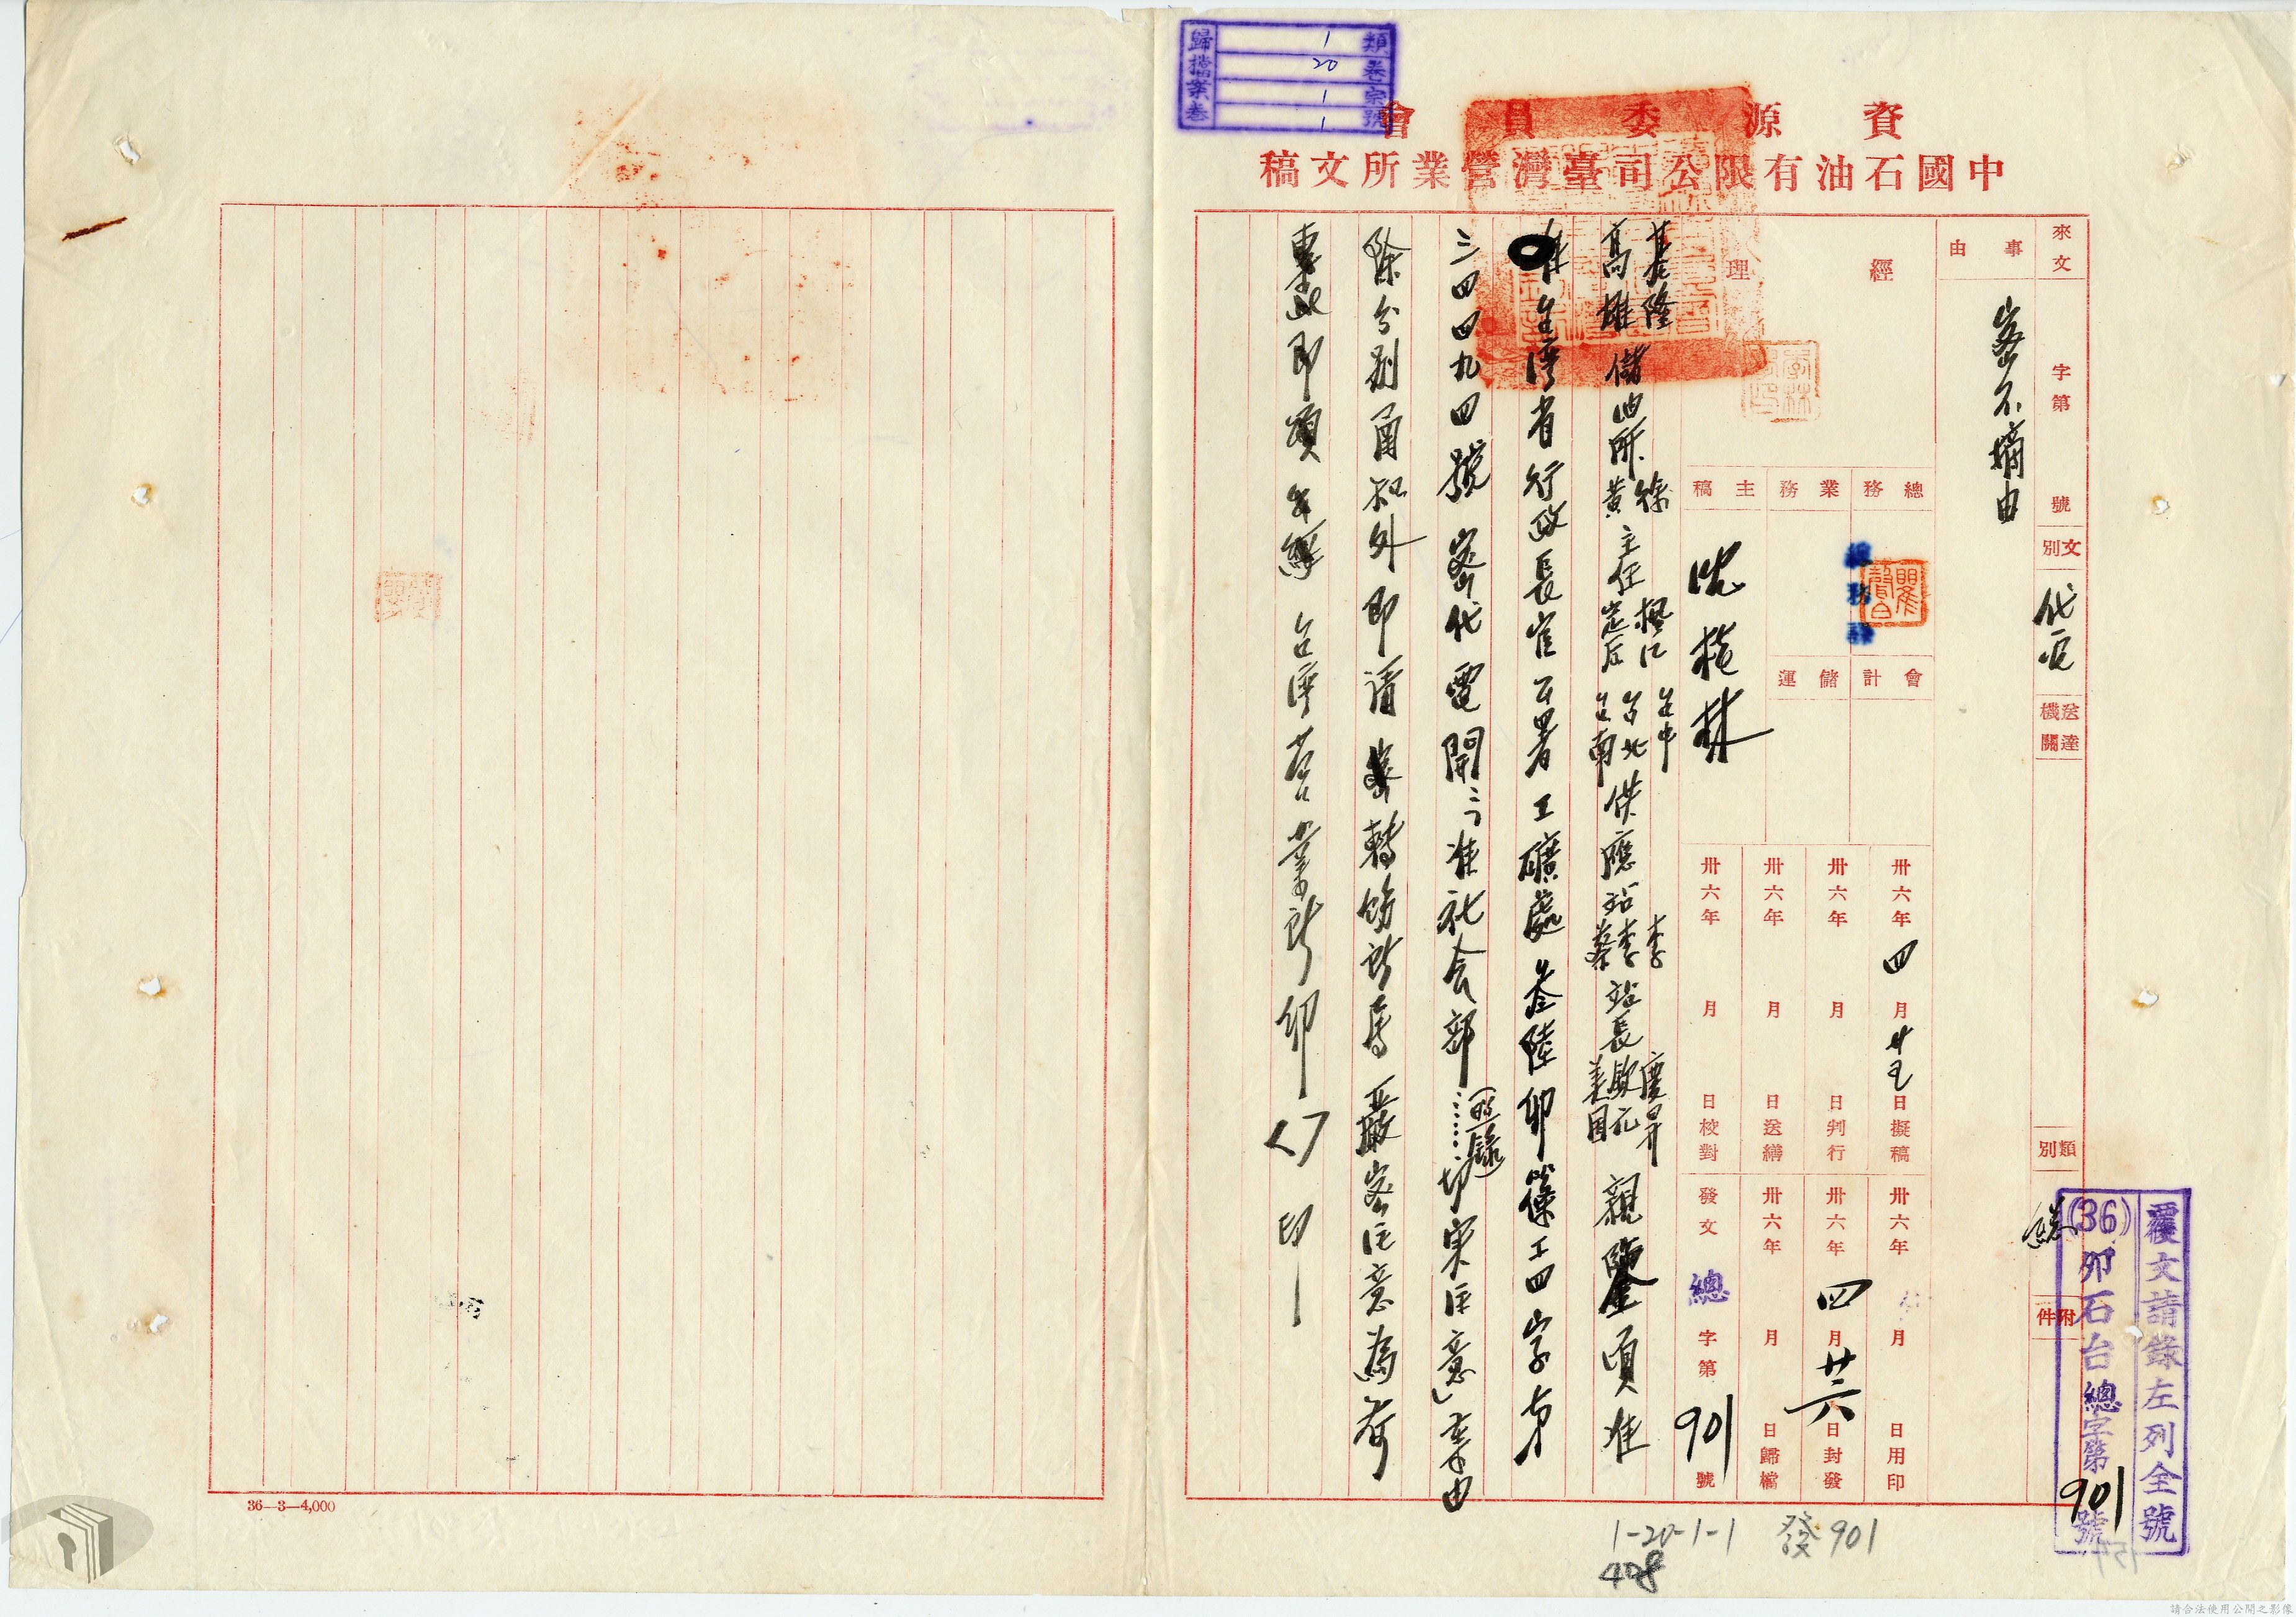 資源委員會
中國石油有限公司臺灣營業所文稿
類卷宗號
1
20
1
1
歸檔案卷
來文 字第 號
文別 代電
送達機關
類別
附件
事由
密不摘由
經理
總務
業務
主稿
會計
儲運
沈桂林
卅六年四月廿五日擬稿
卅六年 月 日判行
卅六年 月 日送繕
卅六年 月 日校對
卅六年 月 日用印
卅六年四月廿六日封發
卅六年 月 日歸檔
發文 總字第901號
覆文請錄左列全號
(36)卯石台總字第901號
基隆
高雄
儲油所
徐
黃
主任
台中
台北
台南
供應站
李
李
蔡
站長
慶昇
欽元
親鑒頃准
台灣省行政長官公署工礦處叁陸卯篠工四字第
三四四九四號密代電開「准社会部……(照錄)切实注意」等由
除分別函知外即請密轉飭所屬嚴密注意為荷
台灣營業所卯 印
36—3—4,000
1-20-1-1 發901
408
請合法使用公開之影像